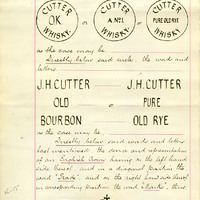 CUTTER CUTTER CUTTER
O.K. or A. No1. or PURE OLD RYE
WHISKY. WHISKY. WHISKY.
as the case may be.
Directly below said circle, the words and
letters
J.H.CUTTER J.H.CUTTER
OLD or PURE
BOURBON OLD RYE
as the case may be.
Directly below said words and letters
last mentioned, the device and representation
of an English Crown having on the left hand
side thereof, and in a diagonal position the
word "Trade", and on the right hand side thereof
in corresponding position the word "Mark", thus